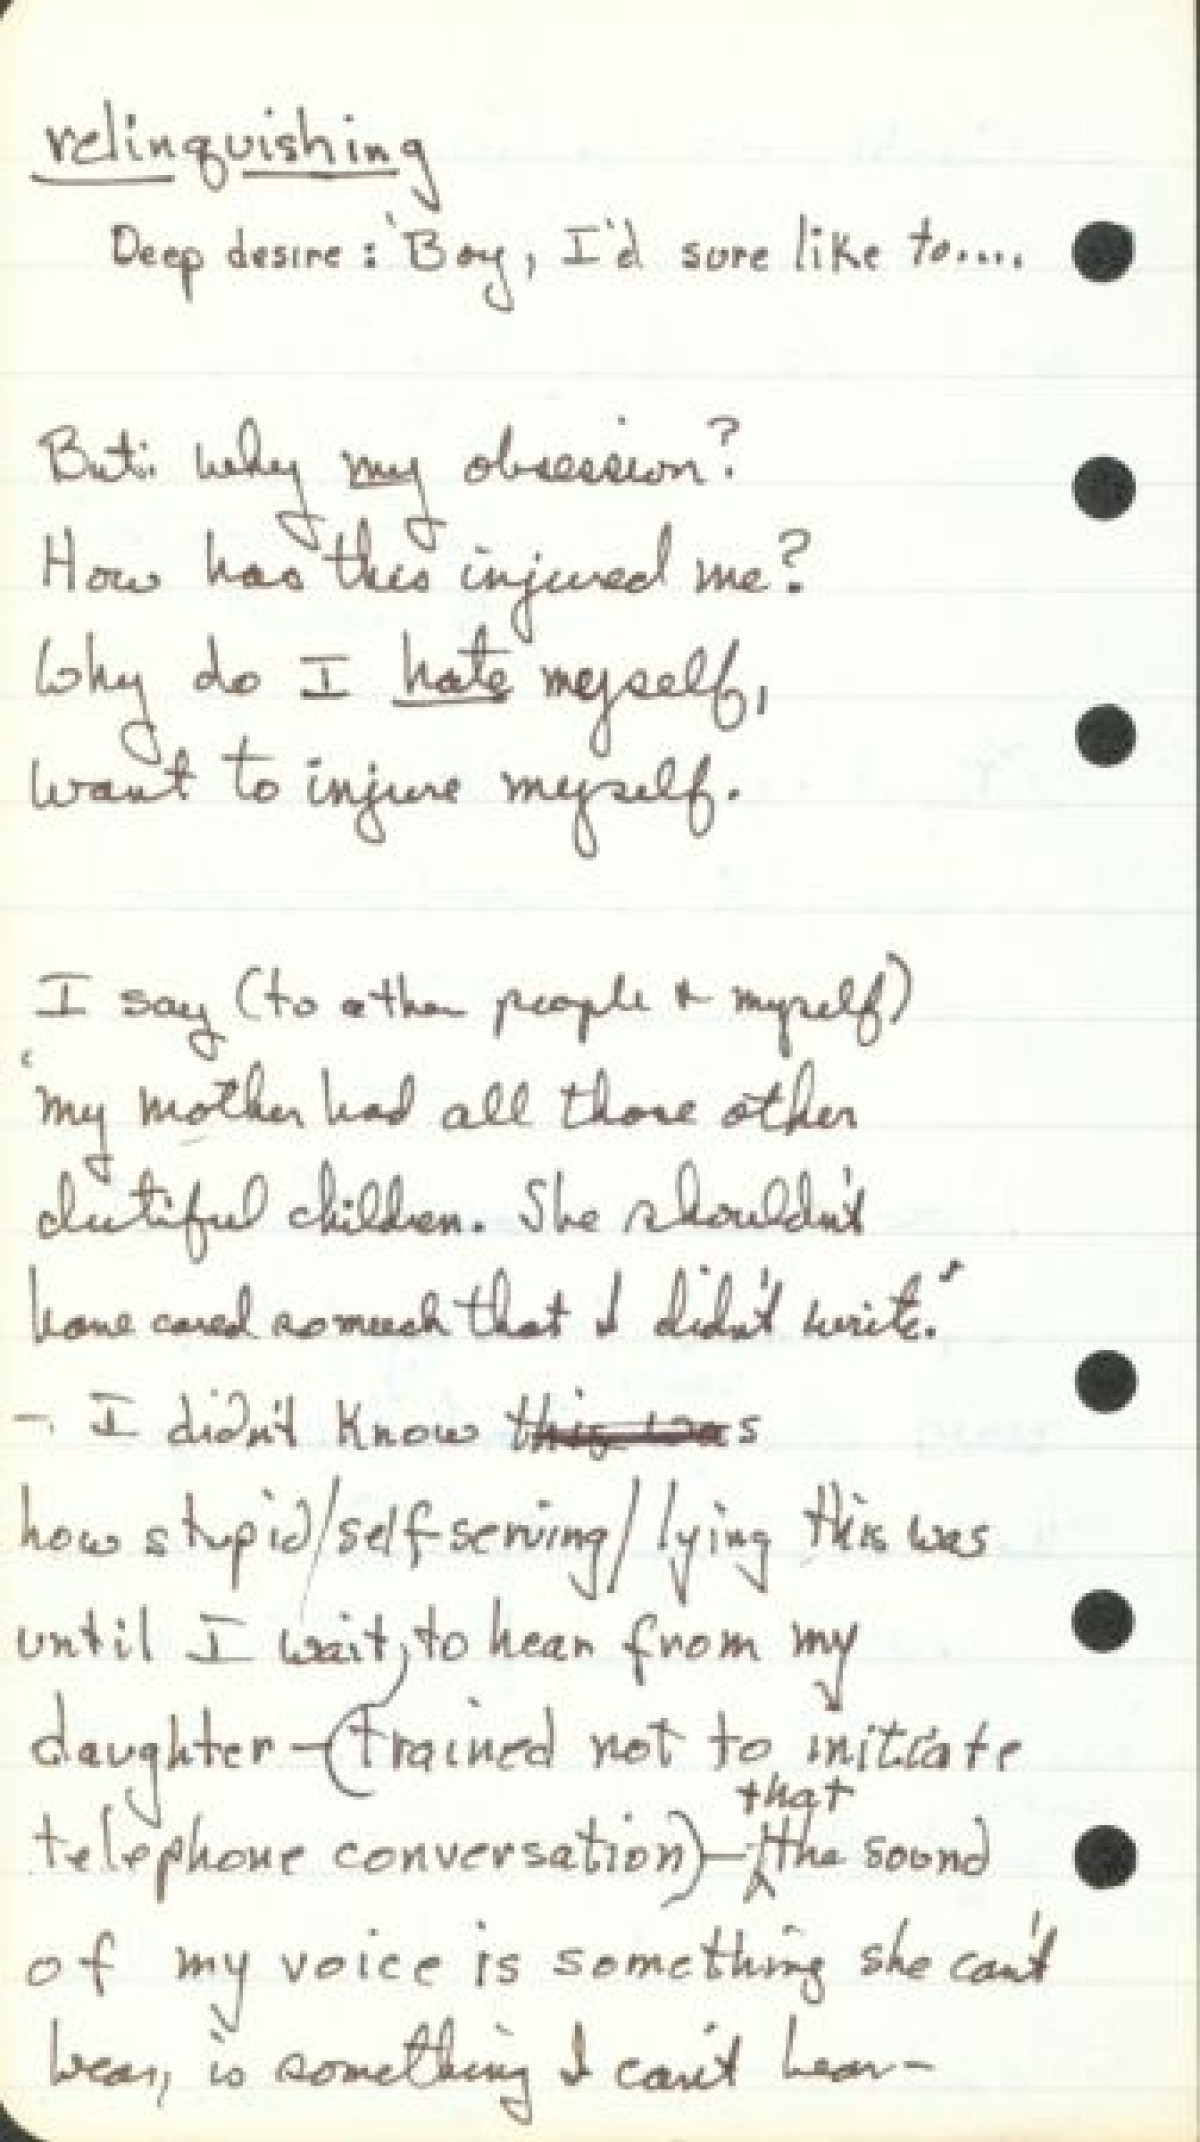 relinquishing
Deep desire: 'Boy, I'd sure like to.....
But: why my obsession?
How has this injured me?
Why do I hate myself,
want to injure myself.
I say (to other people & myself)
'my mother had all those other
dutiful children. She shouldn't
have cared so much that I didn't write."
- I didn't know this was
how stupid/self-serving/lying this was
until I wait, to hear from my
daughter - (trained not to initiate
telephone conversation) - that the sound
of my voice is something she can't
bear, is something I can't hear -